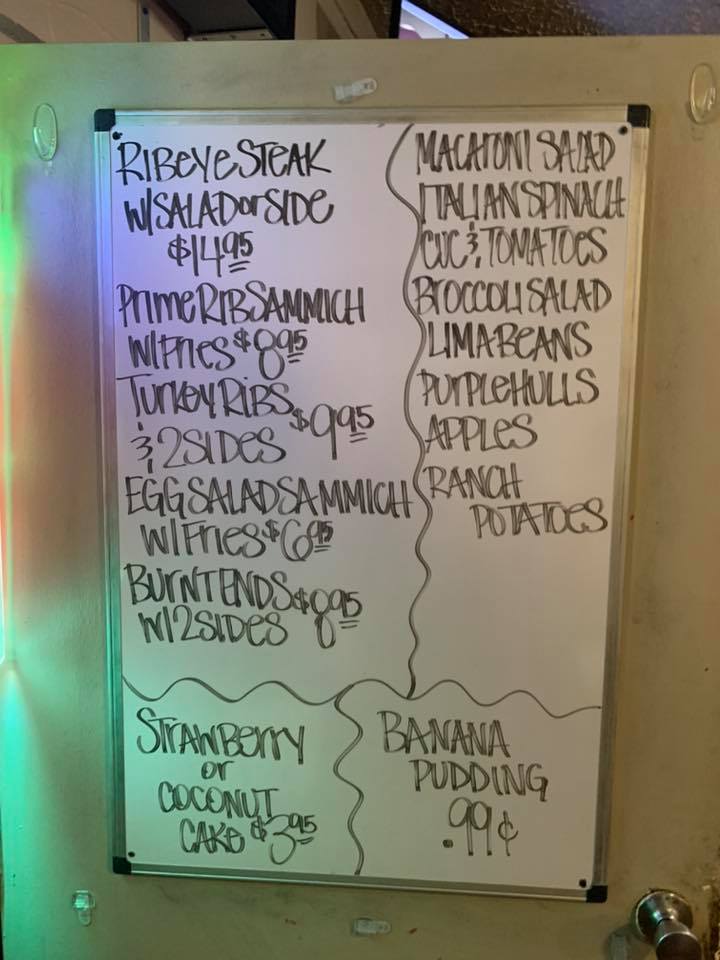 RIBEYE STEAK
W/SALAD or SIDE
$14.95
PRIME RIB SAMMICH
W/FRIES $8.95
TURKEY RIBS $9.95
& 2 SIDES
EGG SALAD SAMMICH
W/FRIES $6.95
BURNT ENDS $8.95
W/2 SIDES
MACARONI SALAD
ITALIAN SPINACH
CUC & TOMATOES
BROCCOLI SALAD
LIMA BEANS
PURPLE HULLS
APPLES
RANCH
POTATOES
STRAWBERRY
or
COCONUT
CAKE $3.95
BANANA
PUDDING
.99¢